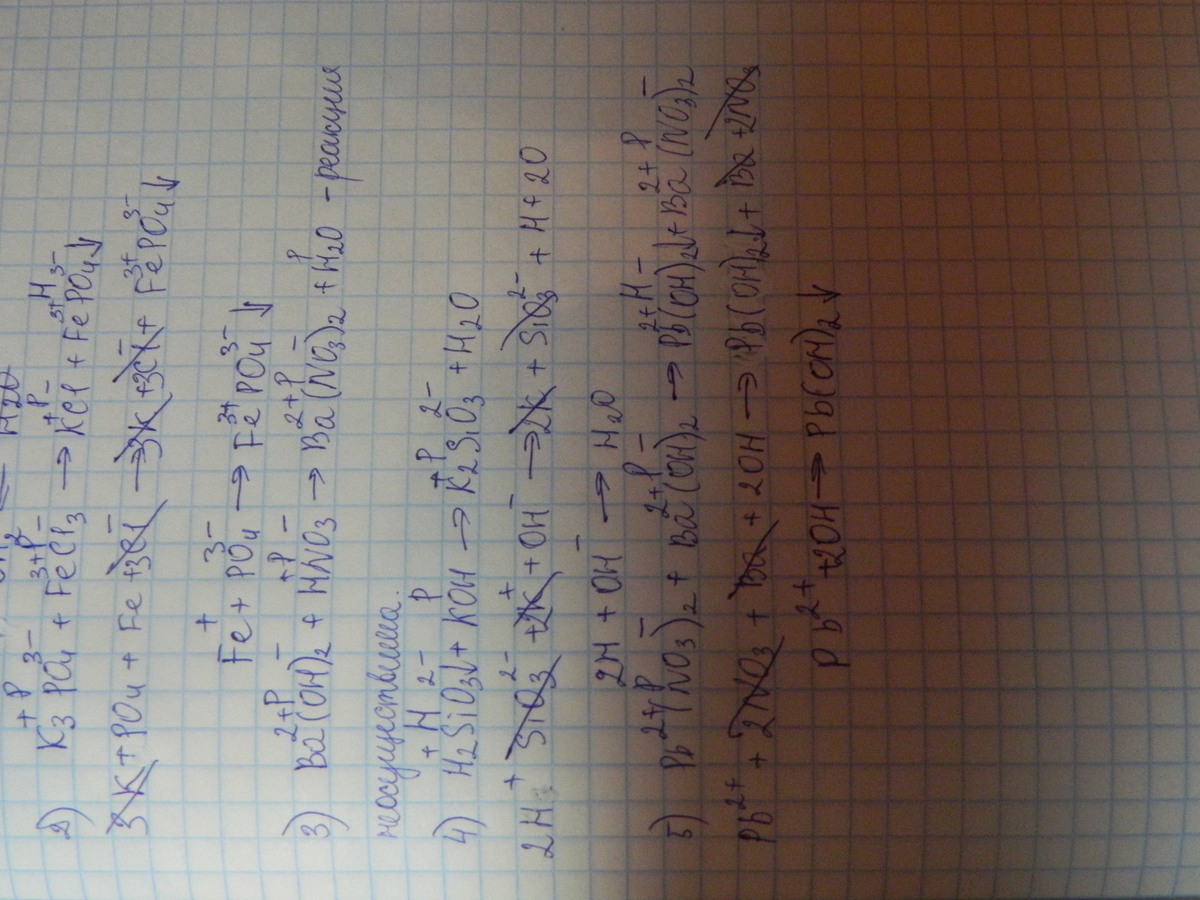 H₂O
2) K₃⁺PO₄³⁻ + Fe³⁺Cl₃⁻ → K⁺Cl⁻ + Fe³⁺PO₄³⁻↓
3K + PO₄ + Fe + 3Cl⁻ → 3K + 3Cl⁻ + Fe³⁺PO₄³⁻↓
Fe⁺ + PO₄³⁻ → Fe³⁺PO₄³⁻↓
3) Ba²⁺(OH)₂⁻ + H⁺NO₃⁻ → Ba²⁺(NO₃)₂⁻ + H₂O - реакция
неосуществима.
4) H₂⁺SiO₃²⁻↓ + KOH → K₂⁺SiO₃²⁻ + H₂O
2H⁺ + SiO₃²⁻ + 2K⁺ + OH⁻ → 2K + SiO₃²⁻ + H + 2O
2H + OH⁻ → H₂O
5) Pb²⁺(NO₃)₂⁻ + Ba²⁺(OH)₂⁻ → Pb²⁺(OH)₂⁻↓ + Ba²⁺(NO₃)₂⁻
Pb²⁺ + 2NO₃ + Ba + 2OH → Pb(OH)₂↓ + Ba + 2NO₃
Pb²⁺ + 2OH → Pb(OH)₂↓